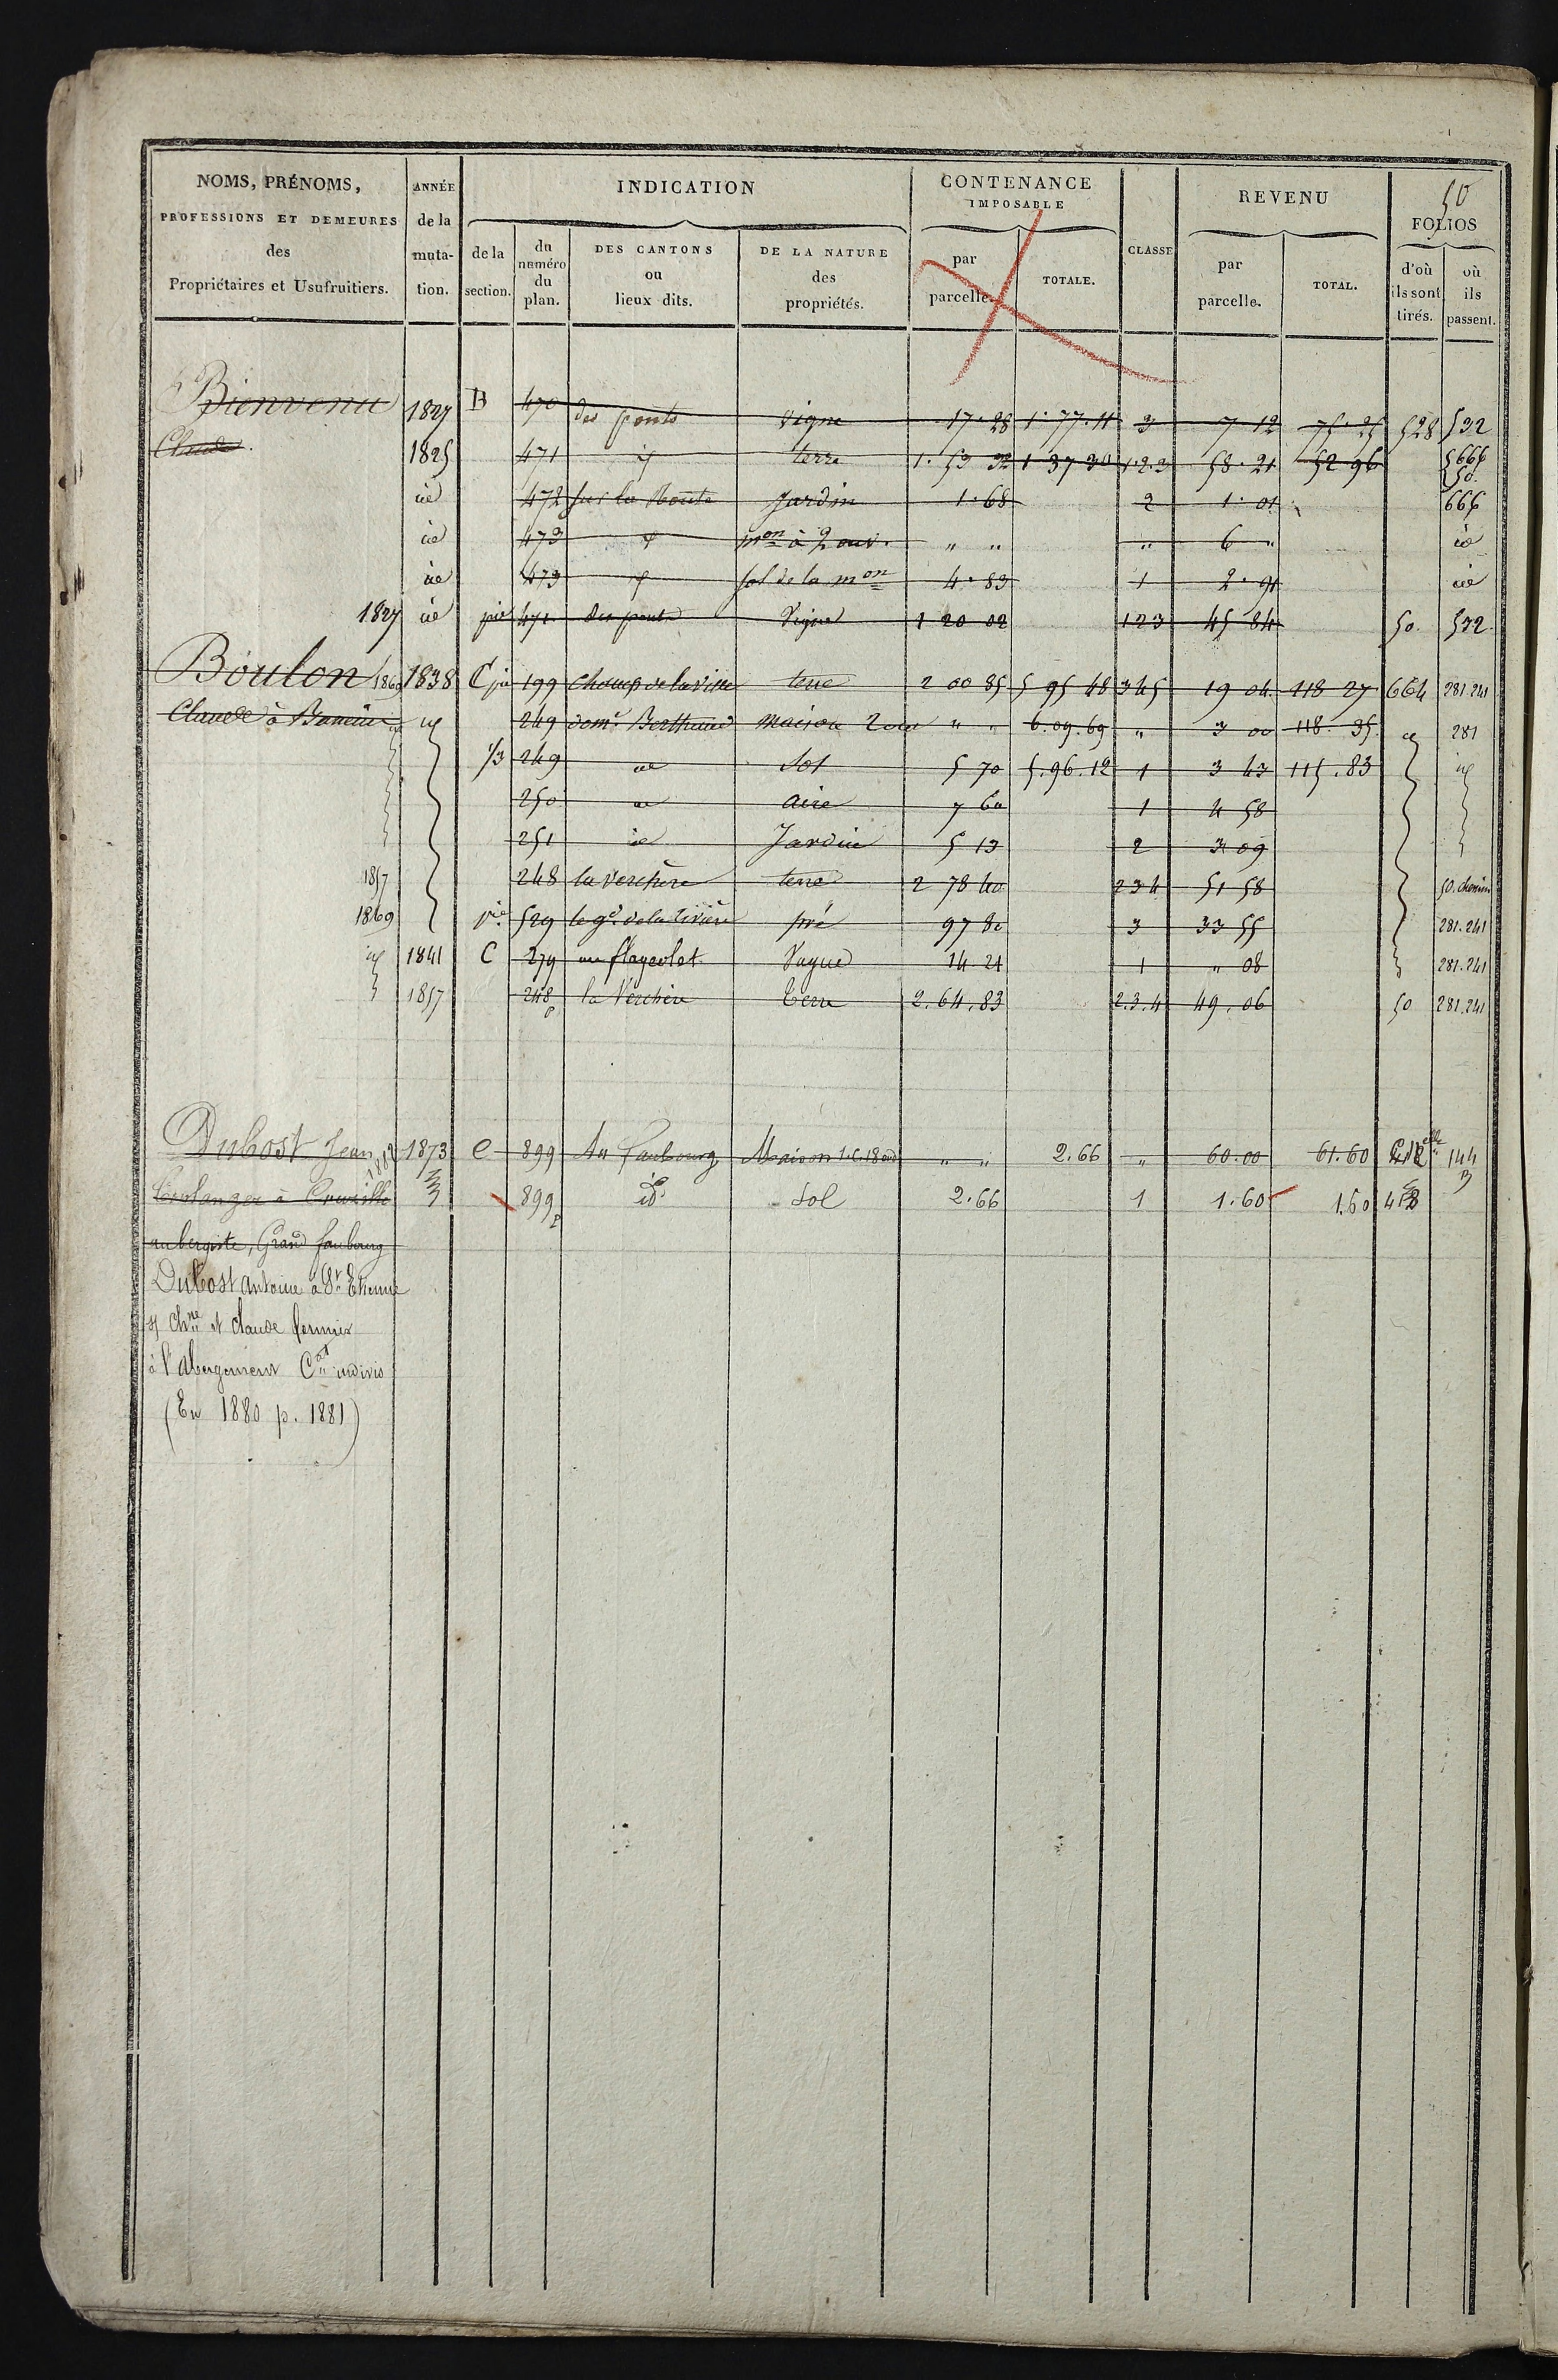 50
NOMS, PRÉNOMS, ANNÉE INDICATION CONTENANCE REVENU
PROFESSIONS ET DEMEURES de la IMPOSABLE FOLIOS
des muta- de la du DES CANTONS DE LA NATURE par TOTALE. CLASSE par TOTAL. d'où où
Propriétaires et Usufruitiers. tion. section. numéro ou des parcelle. parcelle. ils sont ils
du plan. lieux dits. propriétés. tirés. passent.
Bienvenu 1827 B 470 des ponts vigne 17.28 1.77.11 3 7.12 75.25 528 532
Claude. 1825 471 id terre 1.53 32 1 37 30 1.2.3 58.21 52 96 666
50.
id 472 sur la Route Jardin 1.68 2 1.01 666
id 473 id mon à 2 ouv. " " " 6 " id
id 473 id sol de la mon 4.83 1 2.91 id
1827 id pie 471 des ponts Vigne 1 20 02 1 2 3 45 84 50. 532
Boulon 1860 1838 C pie 199 champ de la ville terre 2 00 85 5 95 48 3 4 5 19 04 118 27 664 281.241
Claude à Baneins id 249 dome Berthaud maison 2 ouv " " 6.09.69 " 3 00 118.35 id 281
1/3 249 id Sol 5 70 5.96.12 1 3 43 115.83 id
250 id aire 7 60 1 4 58
251 id Jardin 5 13 2 3 09
1857 248 la verchère terre 2 78 40 2 3 4 51 58 50. chemin
1869 pie 529 le gd de la rivière pré 97 80 3 33 55 281.241
id 1841 C 279 au flageolet Vague 14 21 1 " 08 281.241
1857 248p la Verchère terre 2.64.83 2.3.4 49.06 50 281.241
Dubost Jean 1882 1873 C 899 Au Faubourg Maison 1.C.18 ouv " " 2.66 " 60.00 61.60 144
Boulanger à Cruzille 899p id Sol 2.66 1 1.60 1.60 418
aubergiste, Grand faubourg
Dubost Antoine à St Etienne
s/ Chne et Claude fermier
à l'Abergement Cat indivis
(En 1880 p. 1881)